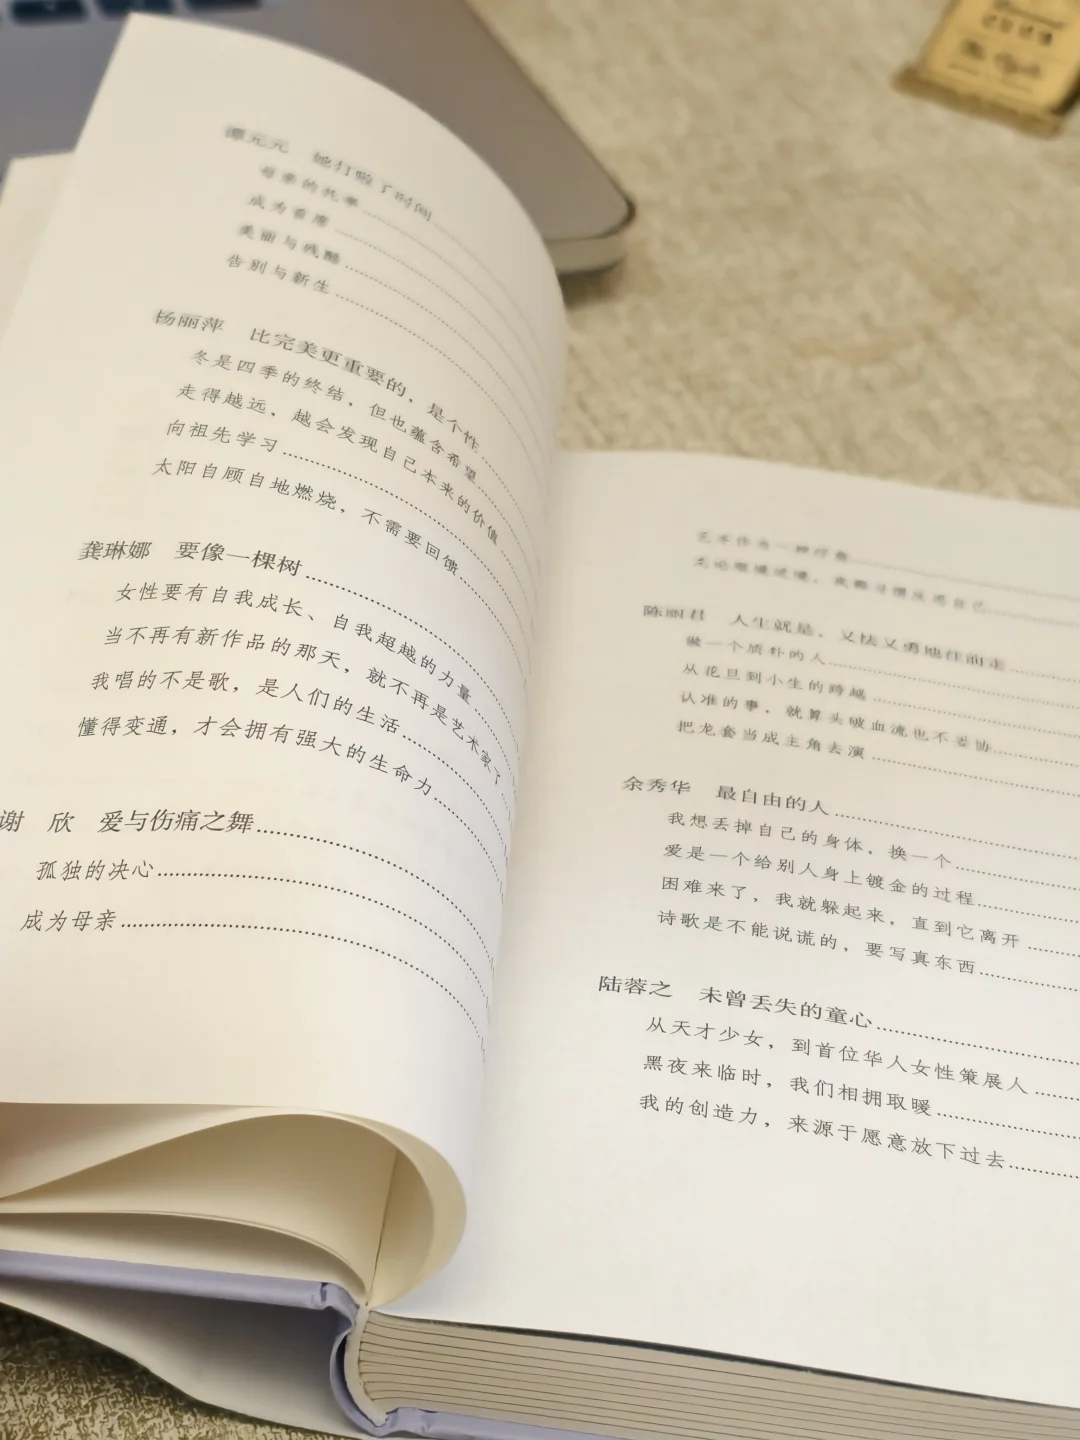 谭元元 她打败了时间
母亲的托举
成为首席
美丽与残酷
告别与新生
杨丽萍 比完美更重要的，是个性
冬是四季的终结，但也蕴含希望
走得越远，越会发现自己本来的价值
向祖先学习
太阳自顾自地燃烧，不需要回馈
龚琳娜 要像一棵树
女性要有自我成长、自我超越的力量
当不再有新作品的那天，就不再是艺术家了
我唱的不是歌，是人们的生活
懂得变通，才会拥有强大的生命力
谢 欣 爱与伤痛之舞
孤独的决心
成为母亲
艺术作为一种疗愈
无论顺境逆境，我都习惯反思自己
陈丽君 人生就是，又怯又勇地往前走
做一个质朴的人
从花旦到小生的跨越
认准的事，就算头破血流也不妥协
把龙套当成主角去演
余秀华 最自由的人
我想丢掉自己的身体，换一个
爱是一个给别人身上镀金的过程
困难来了，我就躲起来，直到它离开
诗歌是不能说谎的，要写真东西
陆蓉之 未曾丢失的童心
从天才少女，到首位华人女性策展人
黑夜来临时，我们相拥取暖
我的创造力，来源于愿意放下过去